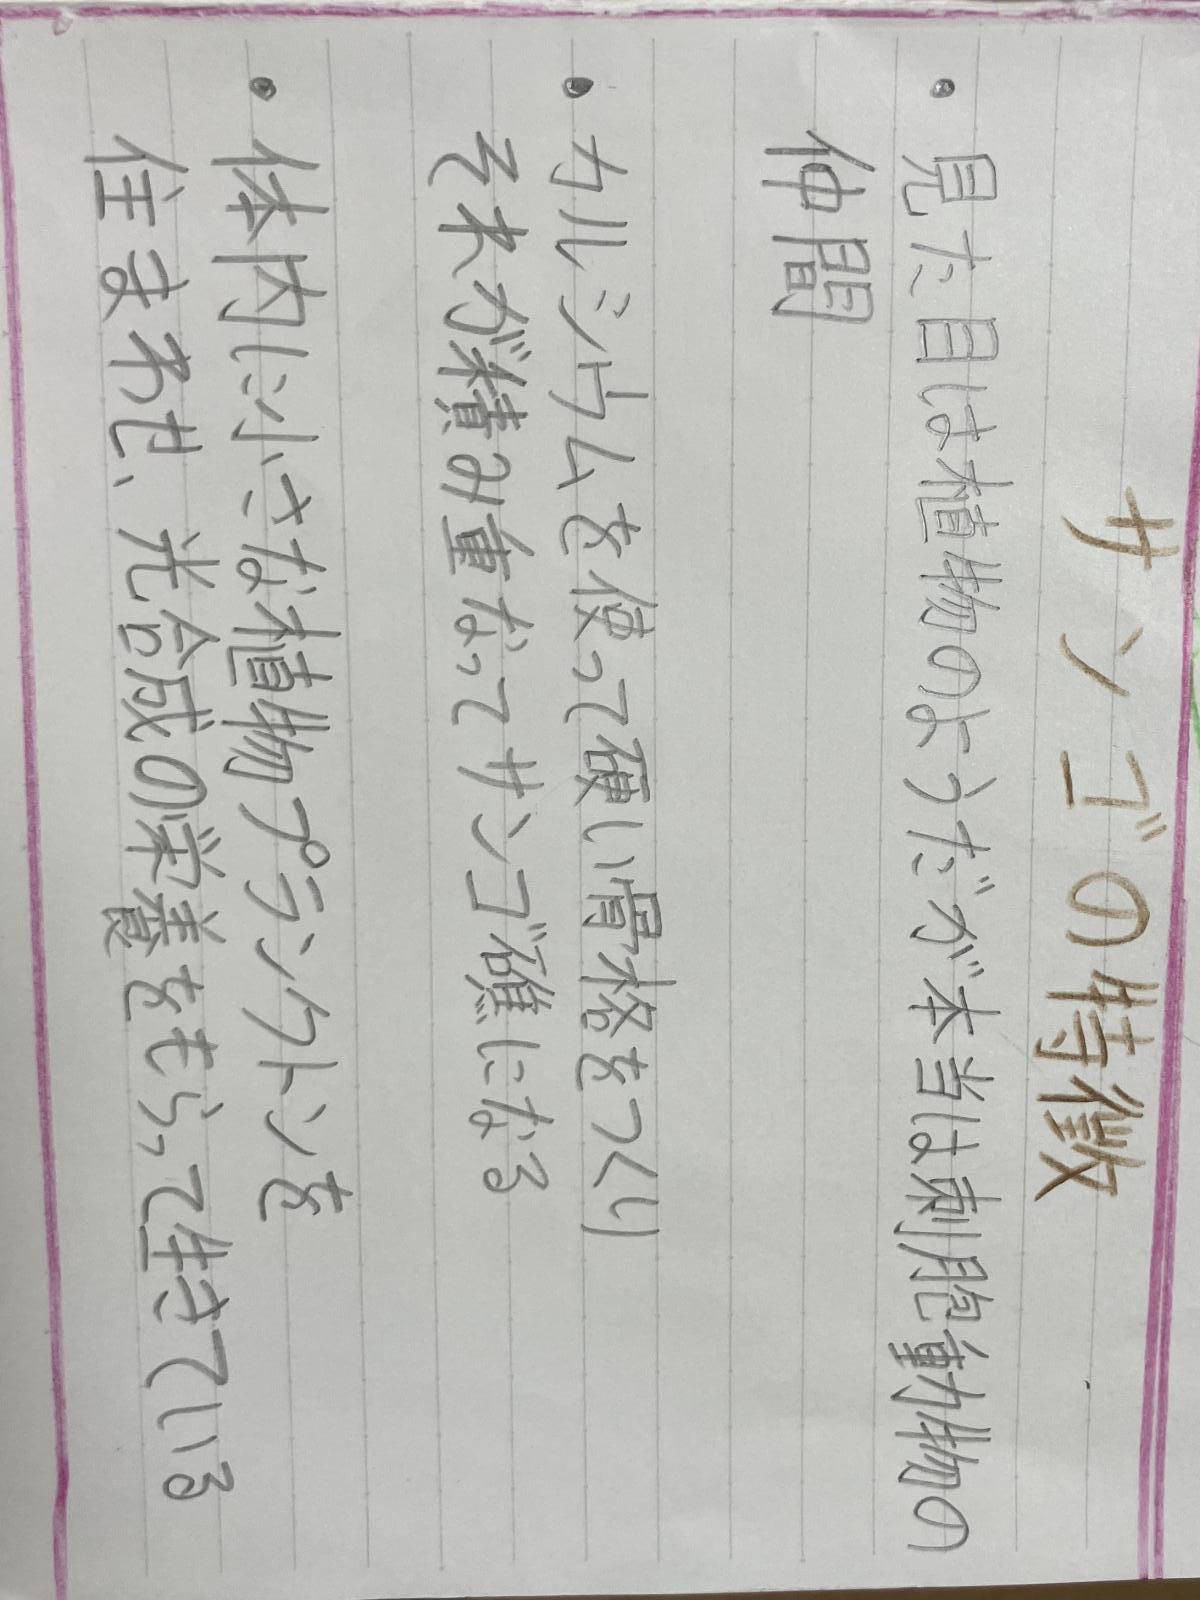 サンゴの特徴
・見た目は植物のようだが本当は刺胞動物の
仲間
・カルシウムを使って硬い骨格をつくり
それが積み重なってサンゴ礁になる
・体内に小さな植物プランクトンを
住まわせ、光合成の栄養をもらって生きている